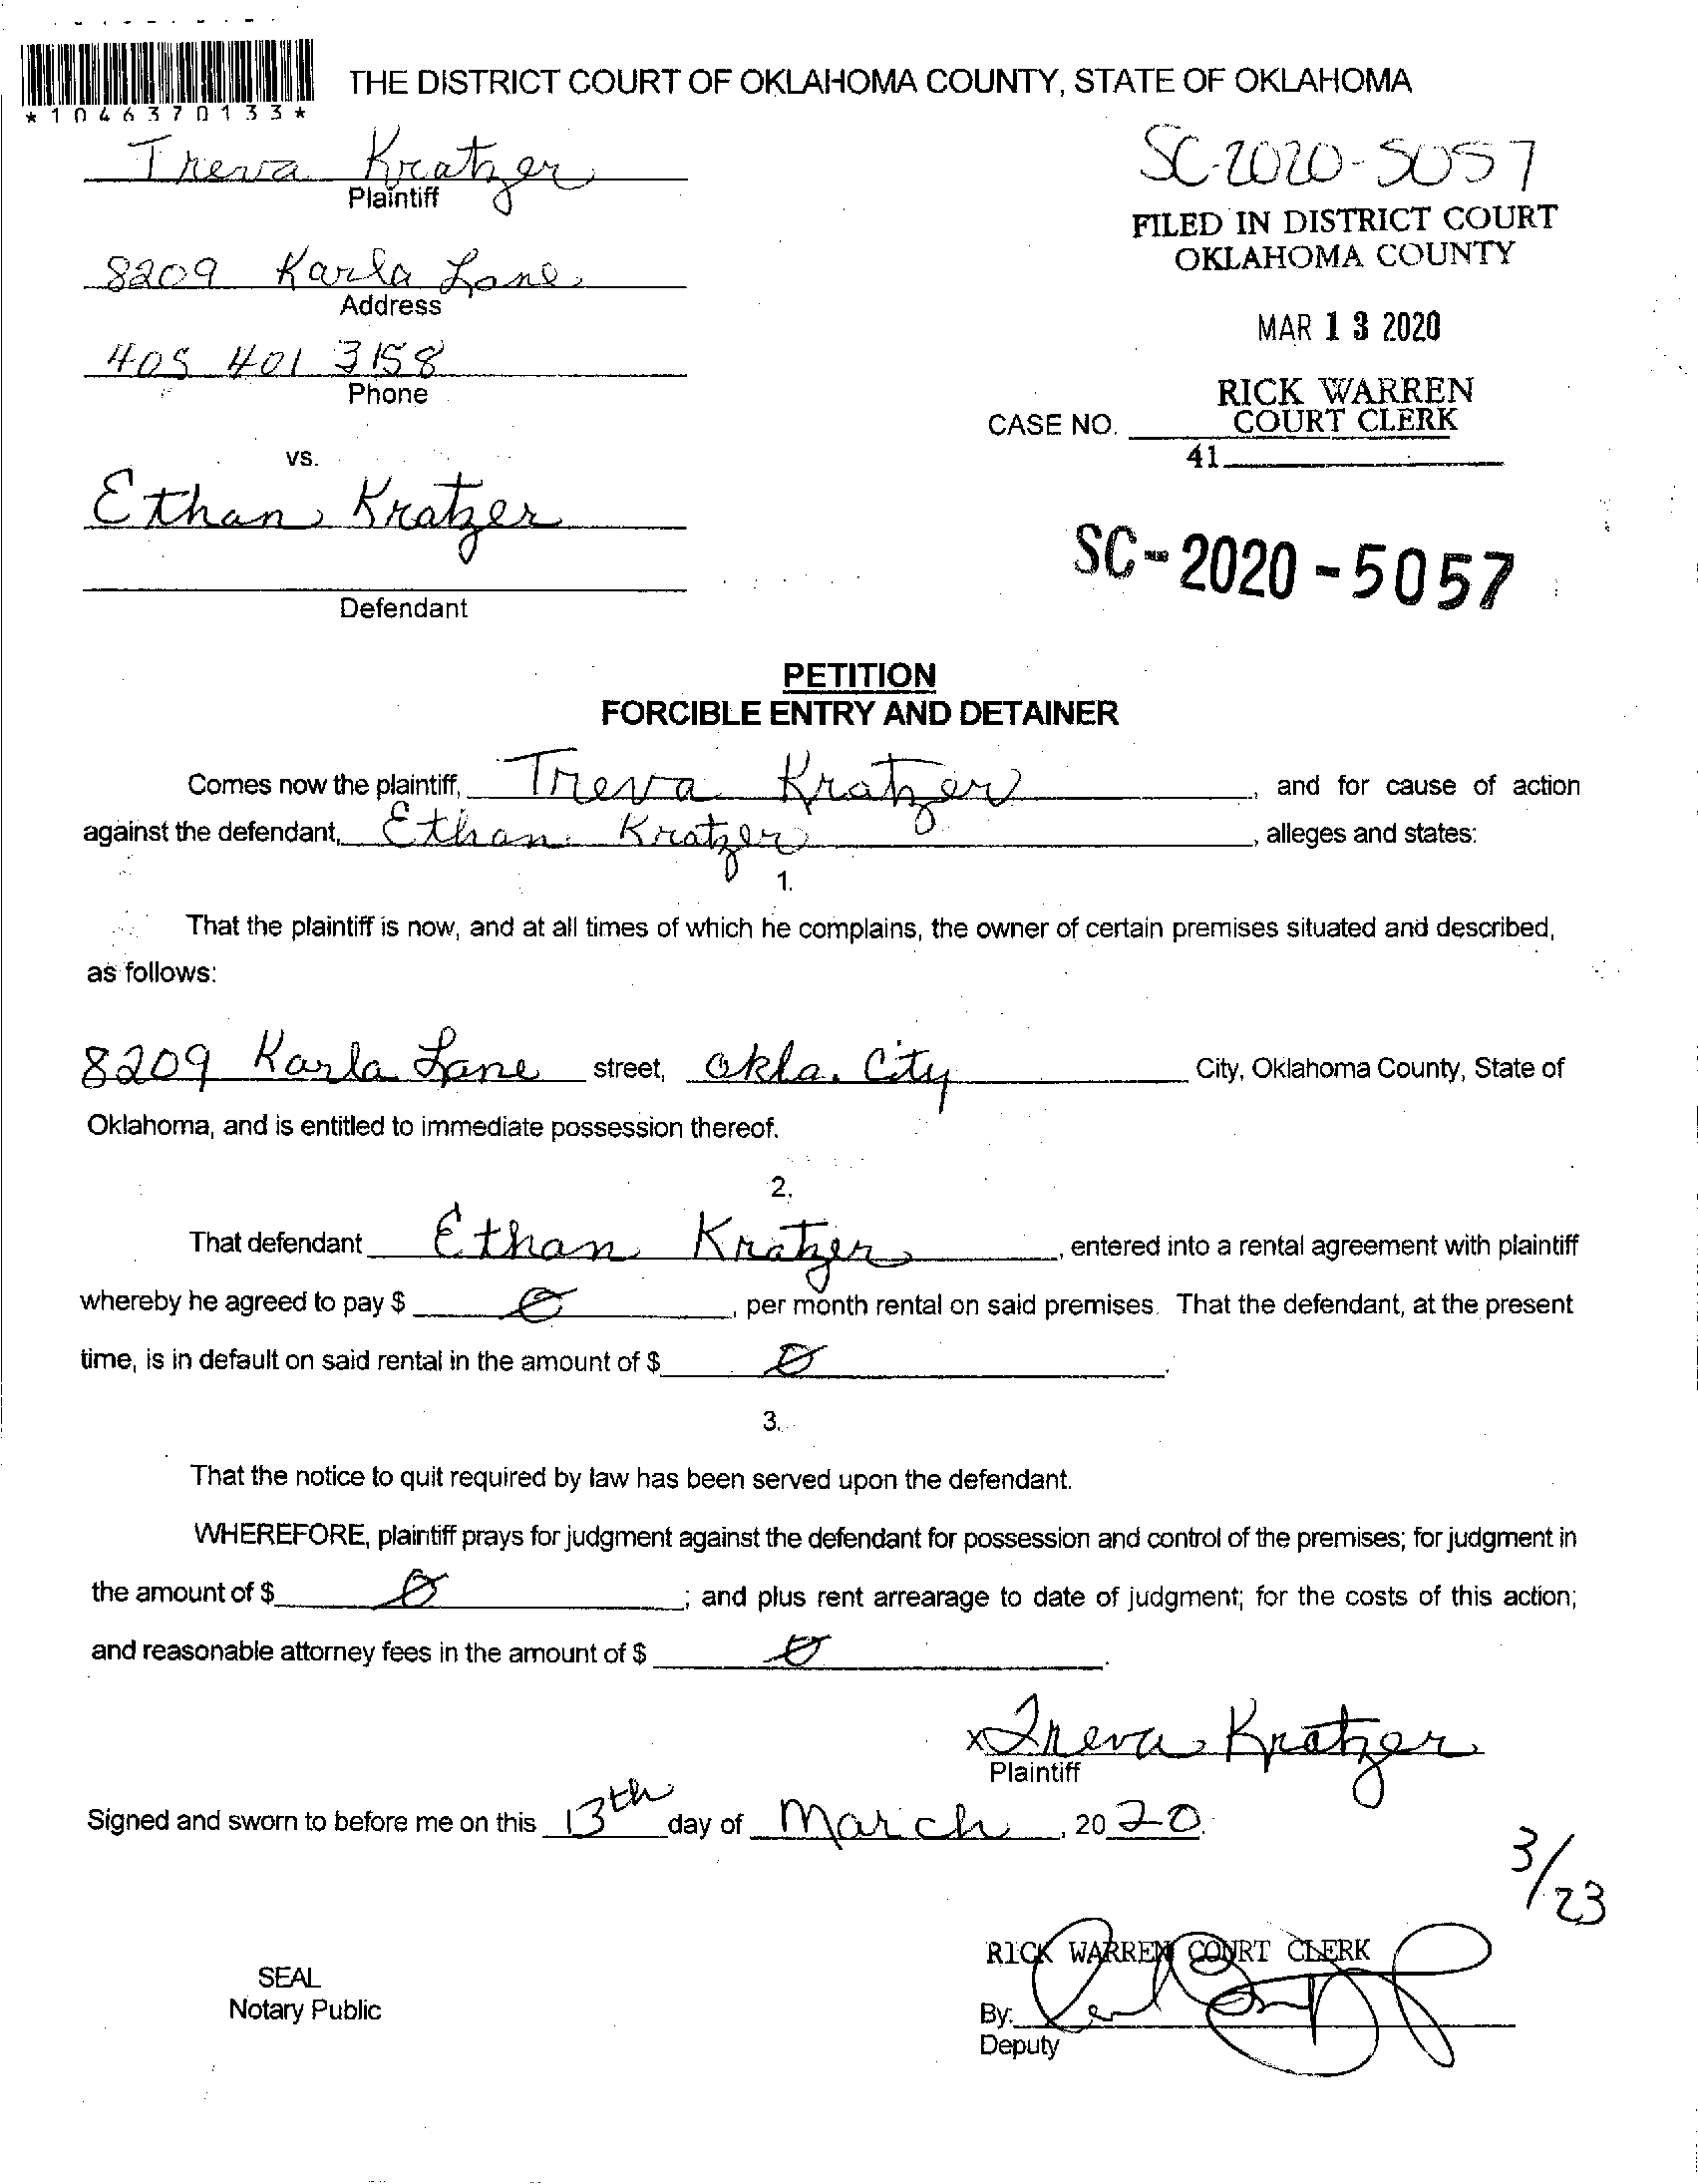 *1046370133*
THE DISTRICT COURT OF OKLAHOMA COUNTY, STATE OF OKLAHOMA
Treva Kratzer
Plaintiff
SC-2020-5057
FILED IN DISTRICT COURT
OKLAHOMA COUNTY
8209 Karla Lane
Address
MAR 13 2020
405 401 3158
Phone
RICK WARREN
COURT CLERK
CASE NO.
41
vs.
Ethan Kratzer
SC-2020-5057
Defendant
PETITION
FORCIBLE ENTRY AND DETAINER
Comes now the plaintiff, Treva Kratzer, and for cause of action
against the defendant, Ethan Kratzer, alleges and states:
1.
That the plaintiff is now, and at all times of which he complains, the owner of certain premises situated and described,
as follows:
8209 Karla Lane street, Okla. City City, Oklahoma County, State of
Oklahoma, and is entitled to immediate possession thereof.
2.
That defendant Ethan Kratzer, entered into a rental agreement with plaintiff
whereby he agreed to pay $ 0, per month rental on said premises. That the defendant, at the present
time, is in default on said rental in the amount of $ 0.
3.
That the notice to quit required by law has been served upon the defendant.
WHEREFORE, plaintiff prays for judgment against the defendant for possession and control of the premises; for judgment in
the amount of $ 0; and plus rent arrearage to date of judgment; for the costs of this action;
and reasonable attorney fees in the amount of $ 0.
x Treva Kratzer
Plaintiff
Signed and sworn to before me on this 13th day of March, 2020.
3/23
RICK WARREN COURT CLERK
SEAL
Notary Public
By:
Deputy